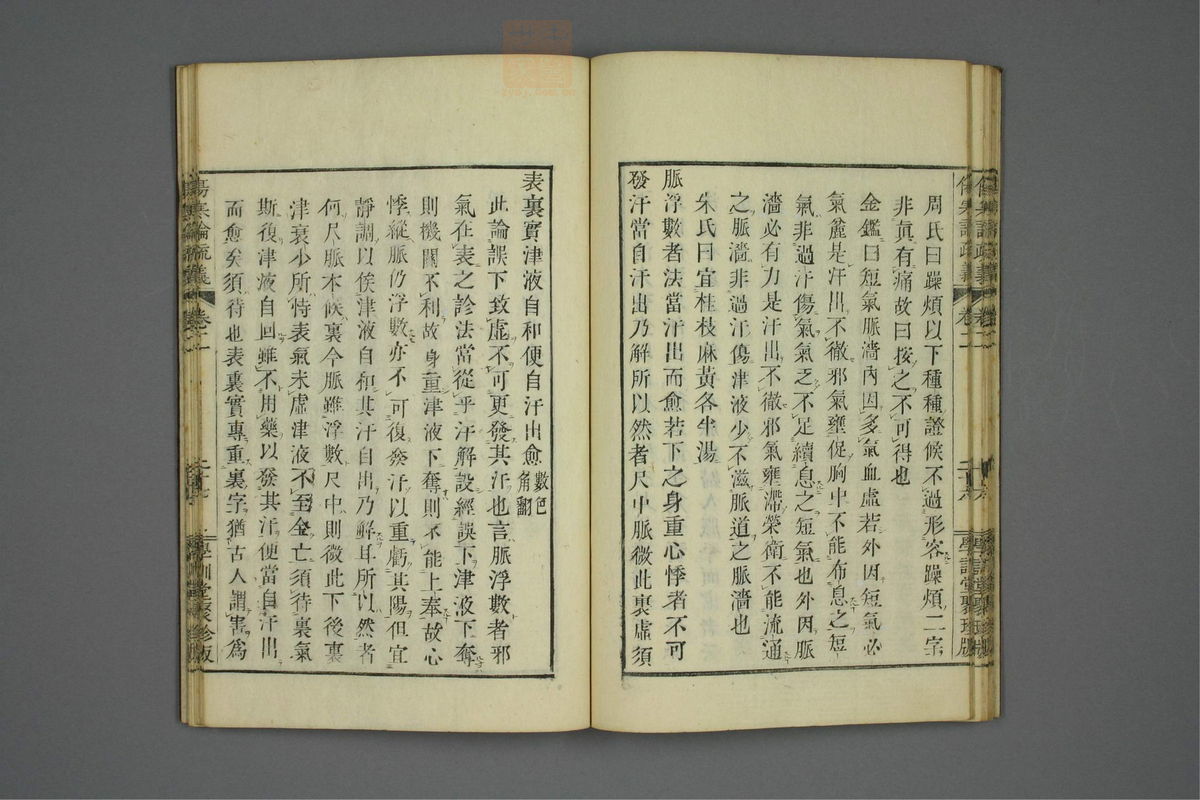 周氏曰躁煩以下種種證候不過形容躁煩二字
非眞有痛故曰按之不可得也
金鑑曰短氣脈濇內因多氣血虛若外因短氣必
氣麤是汗出不徹邪氣壅促胸中不能布息之短
氣非過汗傷氣氣乏不足續息之短氣也外因脈
濇必有力是汗出不徹邪氣壅滯榮衛不能流通
之脈濇非過汗傷津液少不滋脈道之脈濇也
朱氏曰宜桂枝麻黃各半湯
脈浮數者法當汗出而愈若下之身重心悸者不可
發汗當自汗出乃解所以然者尺中脈微此裏虛須
表裏實津液自和便自汗出愈數色角翻
此論誤下致虛不可更發其汗也言脈浮數者邪
氣在表之診法當從乎汗解設經誤下津液下奪
則機關不利故身重津液下奪則不能上奉故心
悸縱脈仍浮數亦不可復發汗以重虧其陽但宜
靜調以俟津液自和其汗自出乃解耳所以然者
何尺脈本候裏今脈雖浮數尺中則微此下後裏
津衰少所恃表氣未虛津液不至全亡須待裏氣
斯復津液自回雖不用藥以發其汗便當自汗出
而愈矣須待也表裏實專重裏字猶古人謂害爲
傷寒論疏義
卷二
學訓堂聚珍版